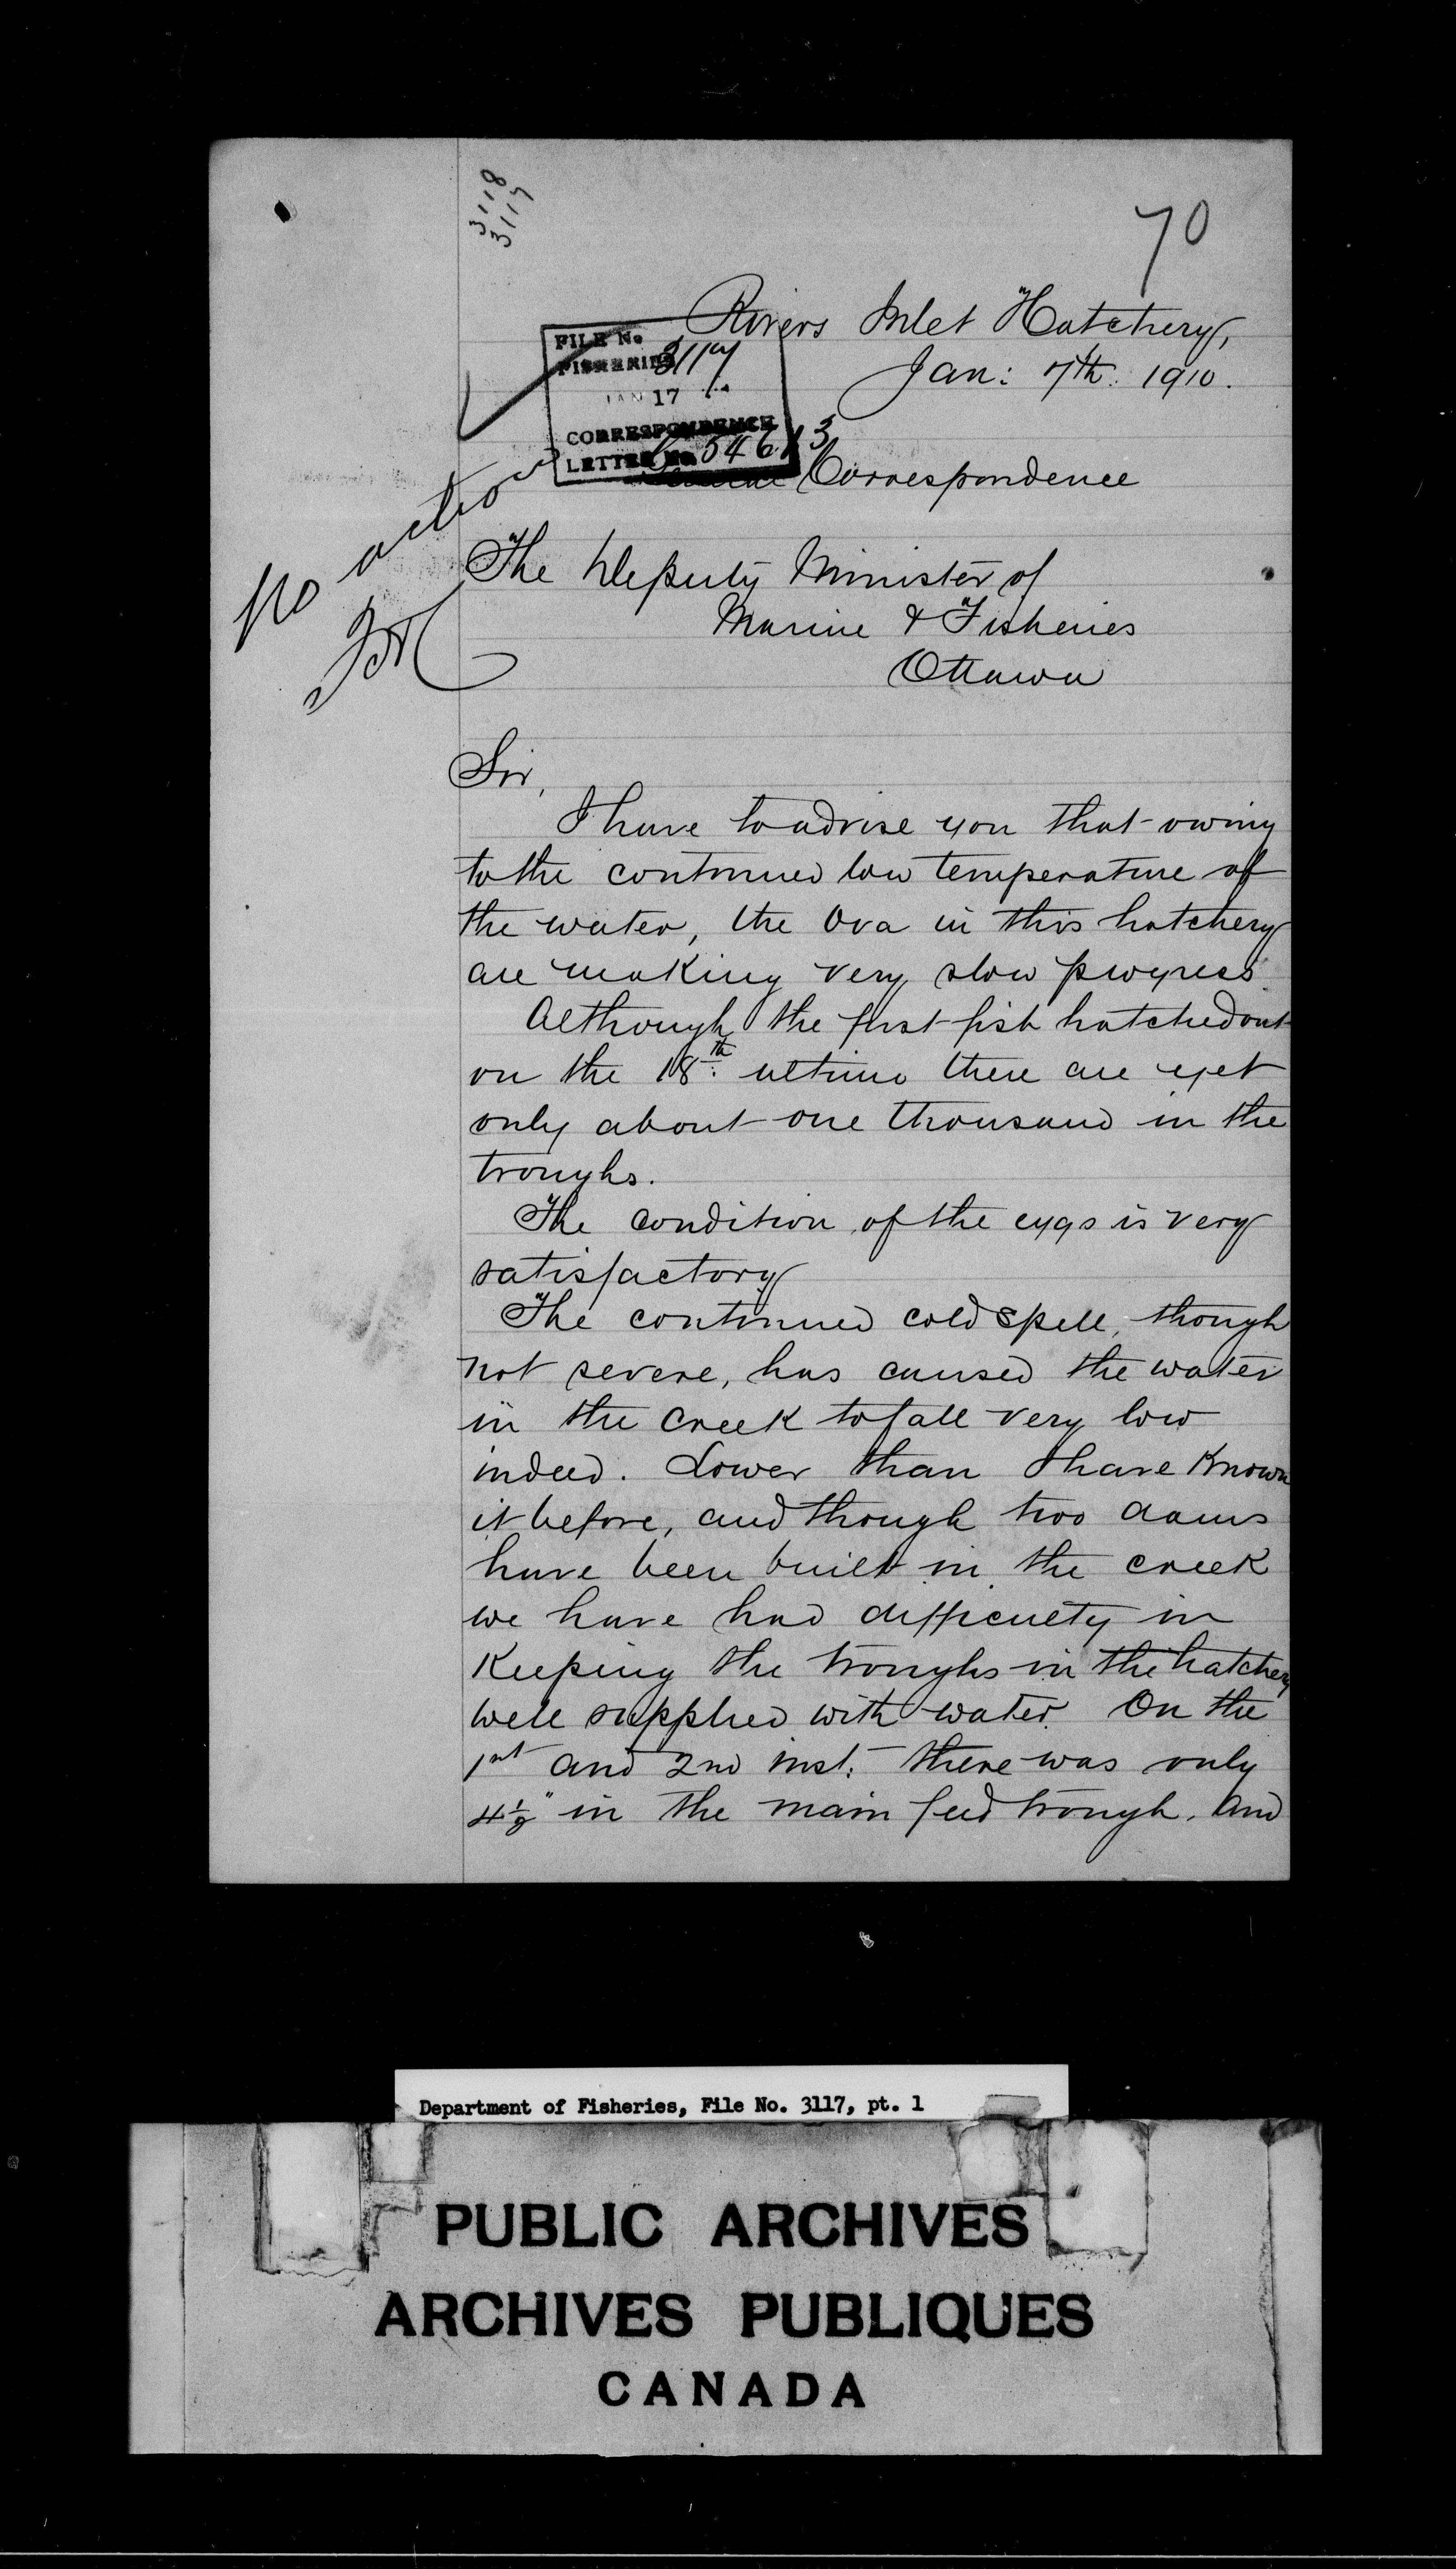 3118
3117
70
Rivers Inlet Hatchery,
Jan: 7th. 1910.
FILE No
FISHERIES 3117
JAN 17
CORRESPONDENCE
LETTER No 54613
Correspondence
No action
The Deputy Minister of
Marine & Fisheries
Ottawa
Sir,
I have to advise you that owing
to the continued low temperature of
the water, the Ova in this hatchery
are making very slow progress.
Although the first fish hatched out
on the 18th: ultimo there are yet
only about one thousand in the
troughs.
The condition of the eggs is very
satisfactory
The continued cold spell, though
not severe, has caused the water
in the creek to fall very low
indeed. Lower than I have known
it before, and though two dams
have been built in the creek
we have had difficulty in
keeping the troughs in the hatchery
well supplied with water. On the
1st and 2nd inst: there was only
4½" in the main feed trough. And
Department of Fisheries, File No. 3117, pt. 1
PUBLIC ARCHIVES
ARCHIVES PUBLIQUES
CANADA